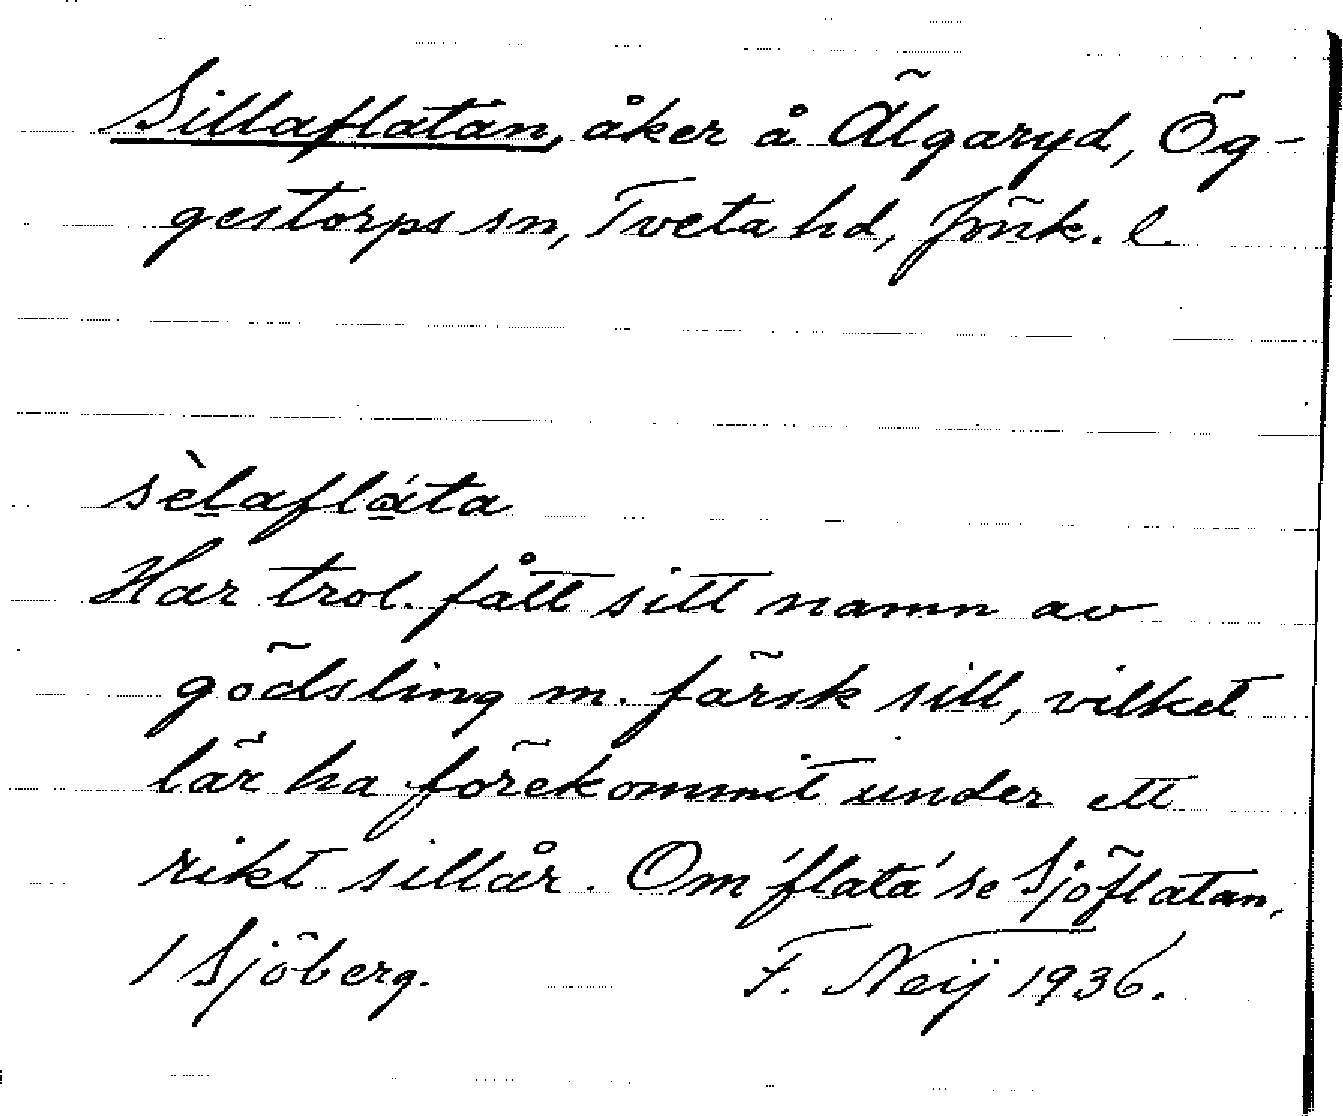 Sillaflatan, åker å Älgaryd, Ög-
gestorps sn, Tveta hd, Jönk. l.
sèlafláta
Har trol. fått sitt namn av
gödsling m. färsk sill, vilket
lär ha förekommit under ett
rikt sillår. Om 'flata' se Sjöflatan,
i Sjöberg. F. Neij 1936.